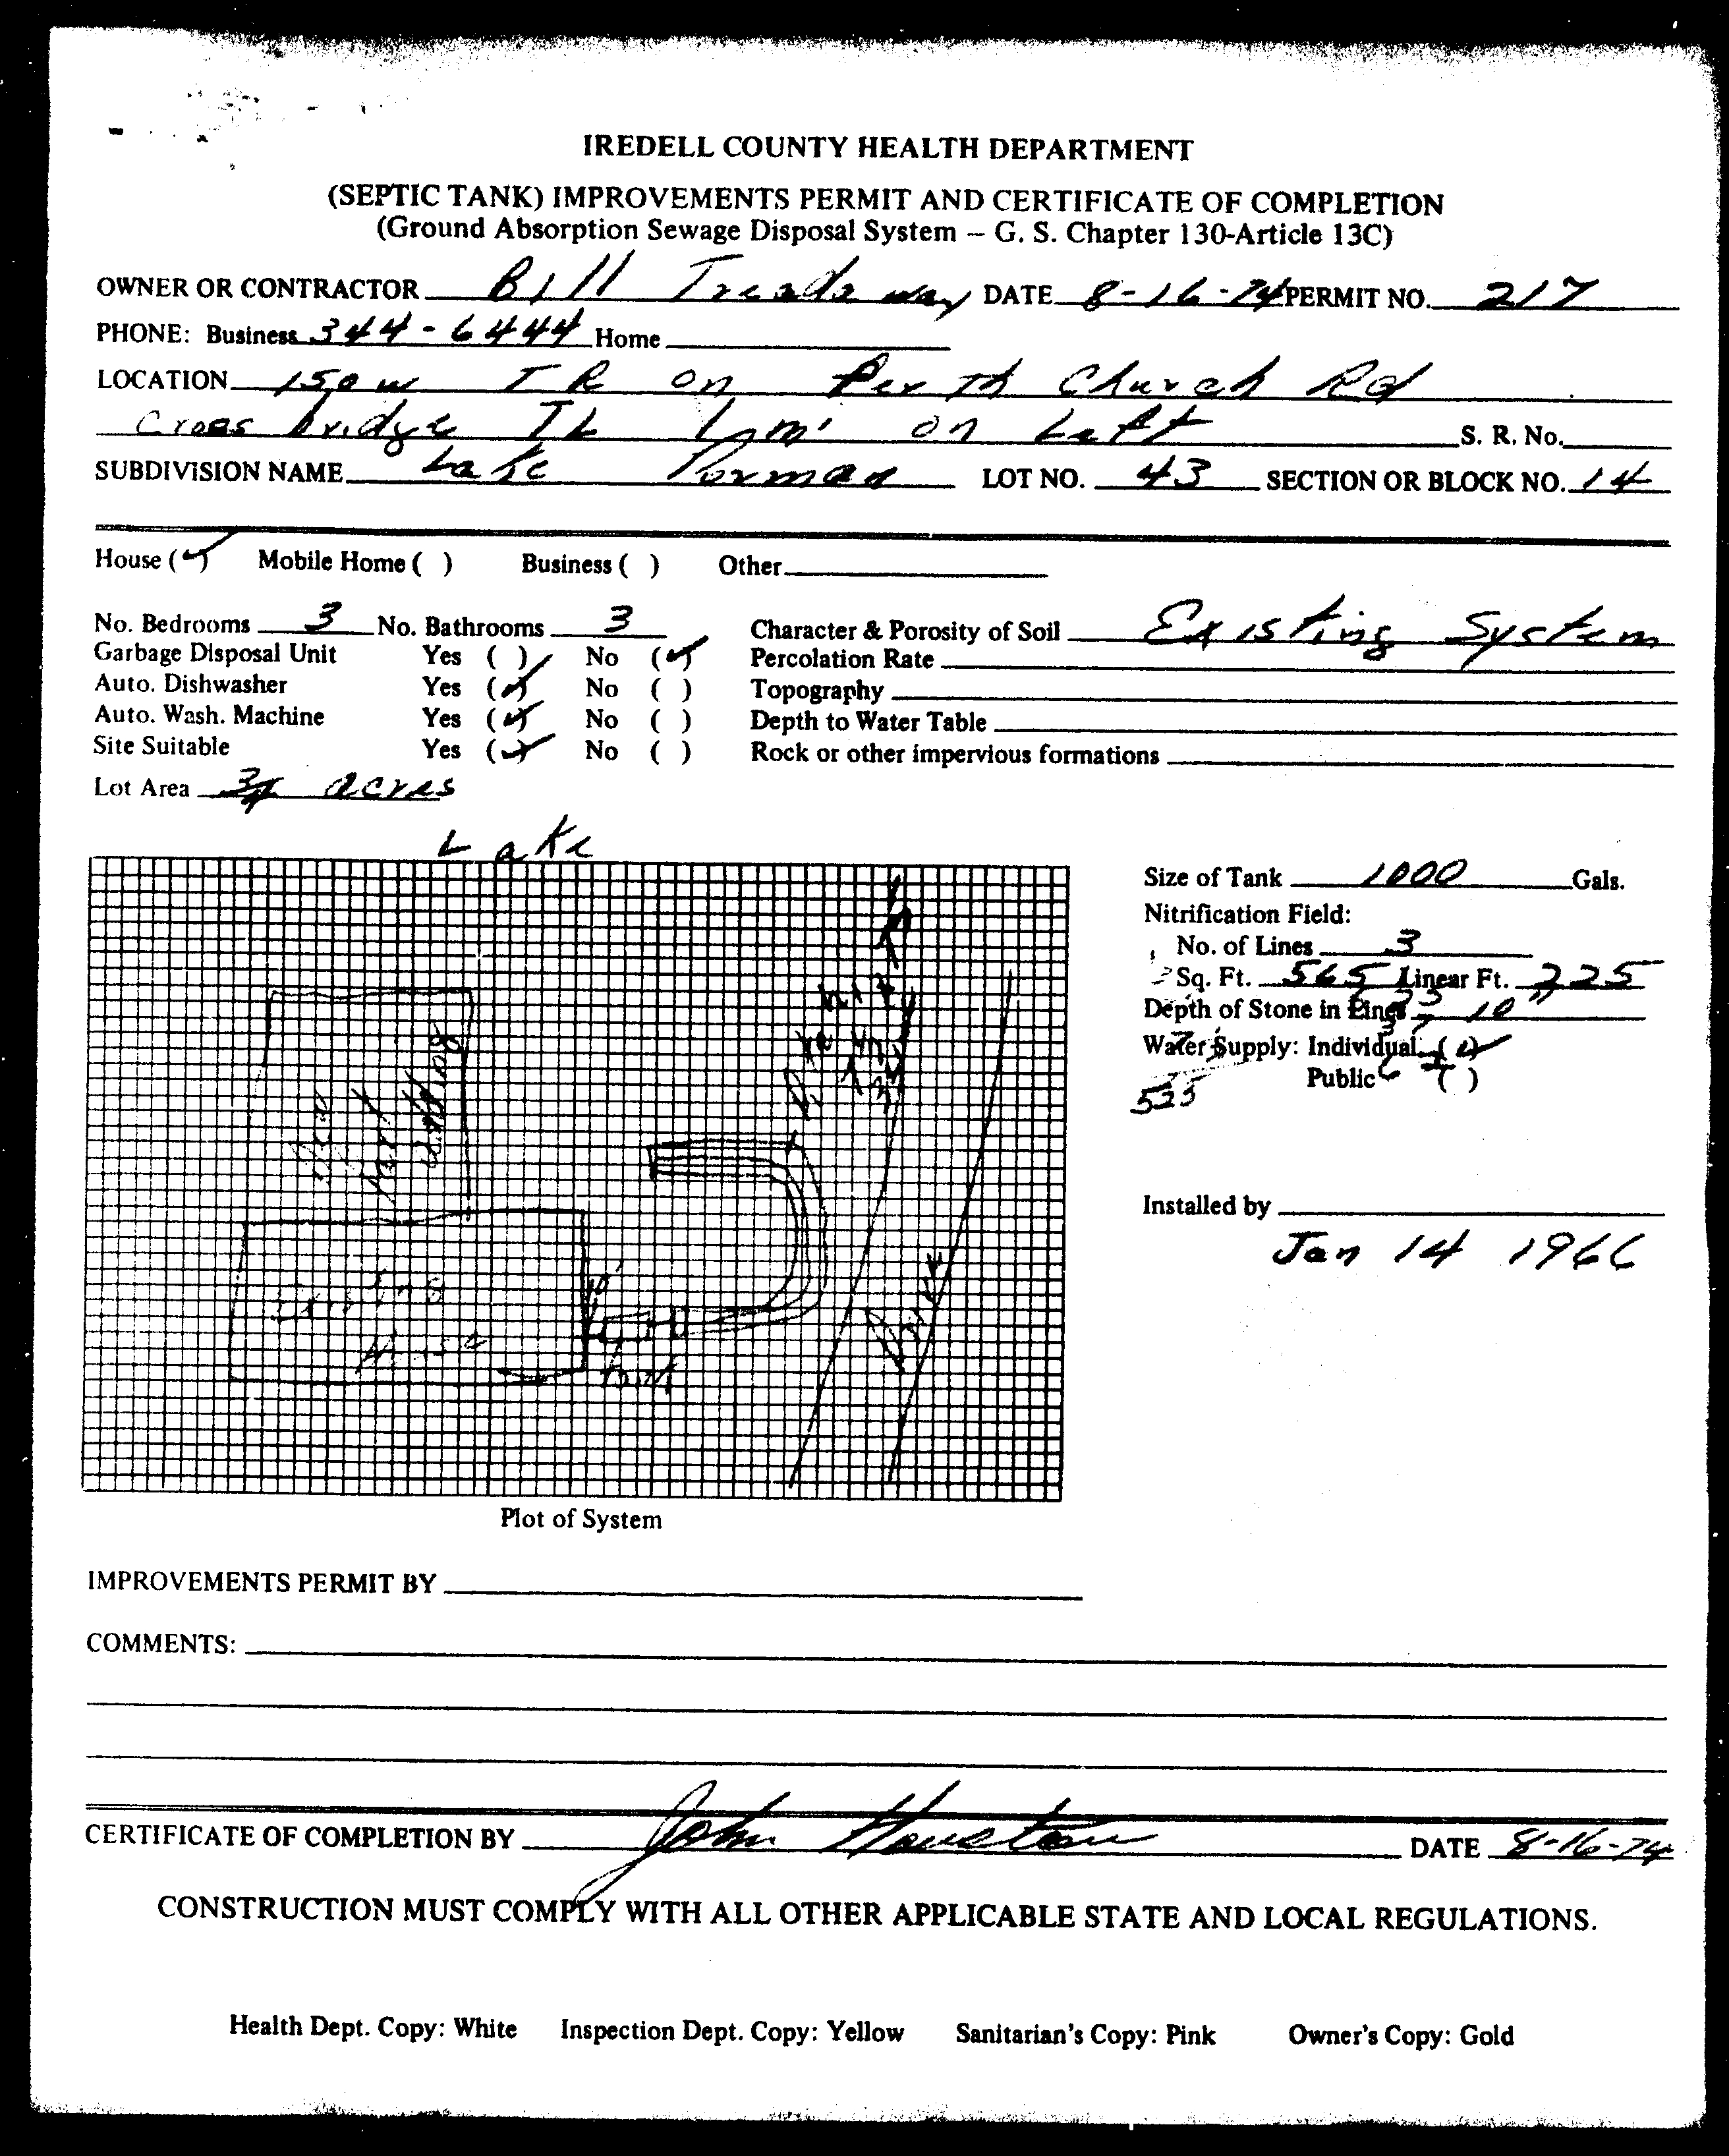 IREDELL COUNTY HEALTH DEPARTMENT
(SEPTIC TANK) IMPROVEMENTS PERMIT AND CERTIFICATE OF COMPLETION
(Ground Absorption Sewage Disposal System – G. S. Chapter 130-Article 13C)
OWNER OR CONTRACTOR Bill Treadaway DATE 8-16-74 PERMIT NO. 217
PHONE: Business 344-6444 Home
LOCATION 150 W TR on Perth Church Rd
Cross bridge TL 1 mi on Left S. R. No.
SUBDIVISION NAME Lake Norman LOT NO. 43 SECTION OR BLOCK NO. 14
House (✓) Mobile Home ( ) Business ( ) Other
No. Bedrooms 3 No. Bathrooms 3 Character & Porosity of Soil Existing System
Garbage Disposal Unit Yes ( ) No (✓) Percolation Rate
Auto. Dishwasher Yes (✓) No ( ) Topography
Auto. Wash. Machine Yes (✓) No ( ) Depth to Water Table
Site Suitable Yes (✓) No ( ) Rock or other impervious formations
Lot Area 3/4 acres
Lake
Size of Tank 1000 Gals.
Nitrification Field:
No. of Lines 3
Sq. Ft. 565 Linear Ft. 225
Depth of Stone in Lines 10"
Water Supply: Individual (✓)
Public ( )
525
Existing
House
Drive
Installed by
Jan 14 1966
Plot of System
IMPROVEMENTS PERMIT BY
COMMENTS:
CERTIFICATE OF COMPLETION BY John Houston DATE 8-16-74
CONSTRUCTION MUST COMPLY WITH ALL OTHER APPLICABLE STATE AND LOCAL REGULATIONS.
Health Dept. Copy: White Inspection Dept. Copy: Yellow Sanitarian's Copy: Pink Owner's Copy: Gold